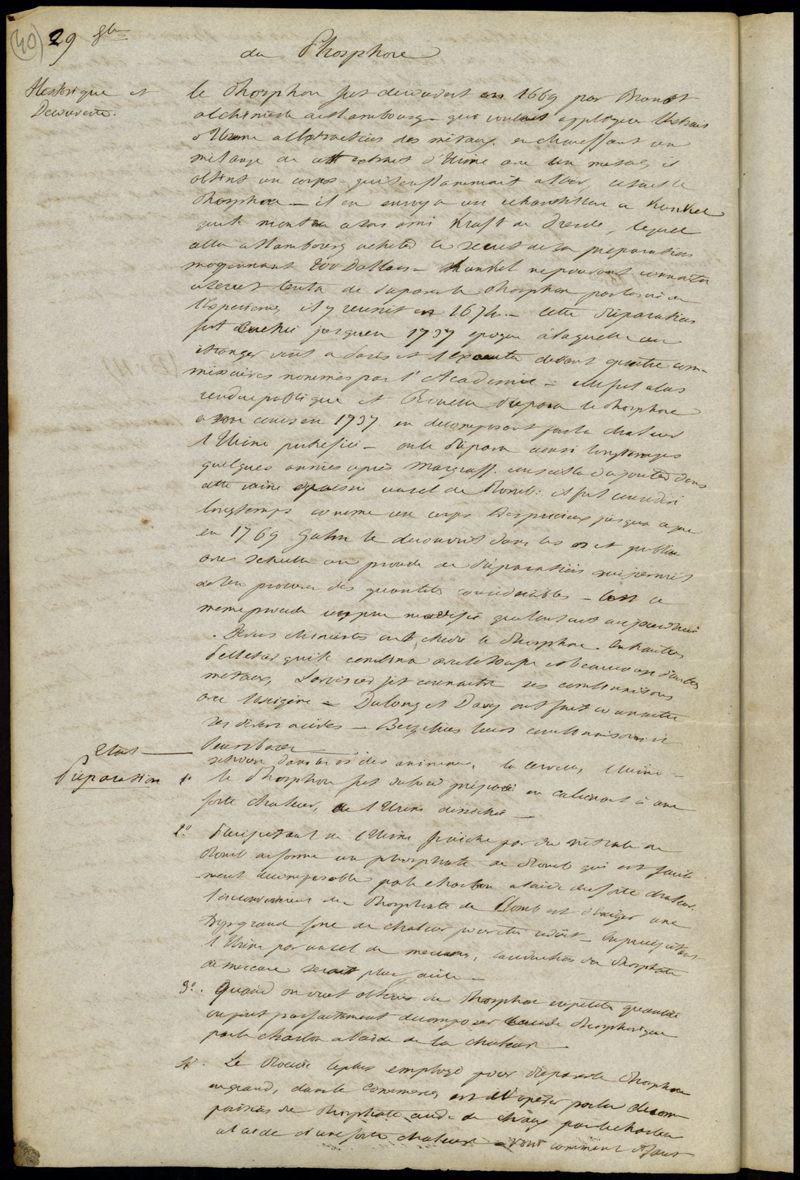 40
29 8bre
du Phosphore
Historique et
Decouverte.
le Phosphore fut decouvert en 1669 par Brandt
alchimiste de Hambourg - qui voulait appliquer l'extrait
d'Urine a l'extraction des metaux. en chauffant un
melange de cet extrait d'Urine avec un metal, il
obtint un corps qui s'enflammait a l'air, c'etait le
Phosphore - il en envoya un echantillon a Kunkel
qui le montra a son ami Kraft de Dresde, lequel
alla a Hambourg acheter le secret de la préparation
moyennant 200 Dollars - Kunkel ne pouvant connaitre
le secret tenta de preparer le Phosphore
l'Experience, il y reussit en 1674 - cette préparation
fut cachée jusqu'en 1737 epoque a laquelle un
etranger vint a Paris et l'executa devant quatre com-
missaires nommés par l'Academie - elle fut alors
rendue publique et Rouelle prepara le Phosphore
a son cours en 1737 en decomposant par la chaleur
l'Urine putrefiée - on le prepara ainsi longtemps
quelques années après Margraff conseilla d'ajouter dans
cette urine un sel de Plomb: il fut considéré
longtemps comme un corps très precieux jusqu'a ce que
en 1769 Gahn le decouvrit dans les os et publia
avec Schelle un procédé de préparation qui permit
de s'en procurer des quantités considerables - c'est ce
meme procédé un peu modifié que l'on suit aujourd'hui
. Divers chimistes ont etudié le Phosphore.
Pelletier qui le combina avec le soufre et beaucoup d'autres
metaux, Lavoisier fit connaitre ses combinaisons
avec l'oxigène - Dulong et Davy ont fait connaitre
ses divers acides - Berzelius leurs combinaisons
leurs bases
Etat - se trouve dans les os des animaux, la cervelle, l'Urine -
Préparation 1° le Phosphore fut d'abord préparé en calcinant à une
forte chaleur, de l'Urine dessechée -
2° Précipitant de l'Urine fraiche par du nitrate de
Plomb il se forme un phosphate de Plomb qui est facile
ment decomposable par le charbon a l'aide d'une forte chaleur.
l'inconvenient du Phosphate de Plomb est d'exiger une
trop grande force de chaleur pour etre réduit - en precipitant
l'Urine par un sel de mercure, la reduction du Phosphate
de mercure serait plus facile -
3°. Quand on veut obtenir du Phosphore en petite quantité
on peut parfaitement decomposer l'acide Phosphorique
par le charbon a l'aide de la chaleur -
4°. Le Procédé le plus employé pour préparer le Phosphore
en grand, dans le commerce est de l'operer par la decom
position du Phosphate acide de chaux par le charbon
a l'aide d'une forte chaleur - voici comment il faut